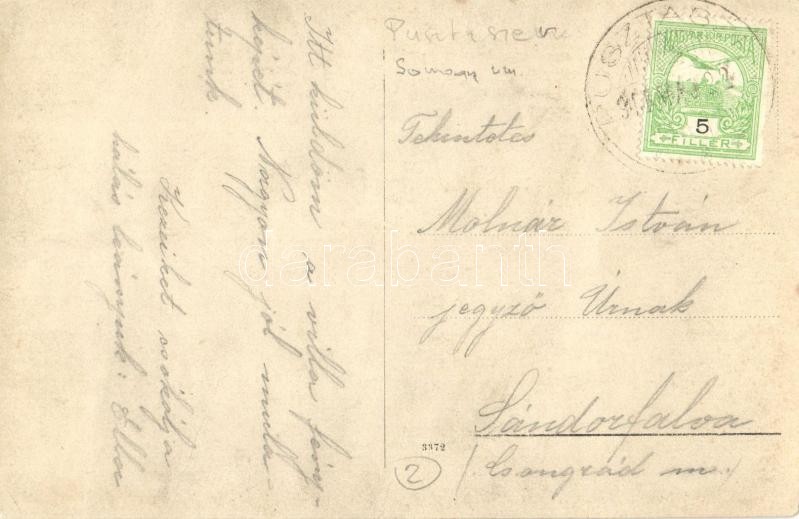 Itt küldöm a villa fény-
képét. Nagyon jól mula-
tunk.
Kezeiket csókolja
hálás leányuk: Ella
Pusztaszem
Somogy vm.
PUSZTAS
MAGYAR KIR. POSTA
5
FILLÉR
Tekintetes
Molnár István
jegyző Úrnak
Sándorfalva
/Csongrád m./
3372
2
darabanth